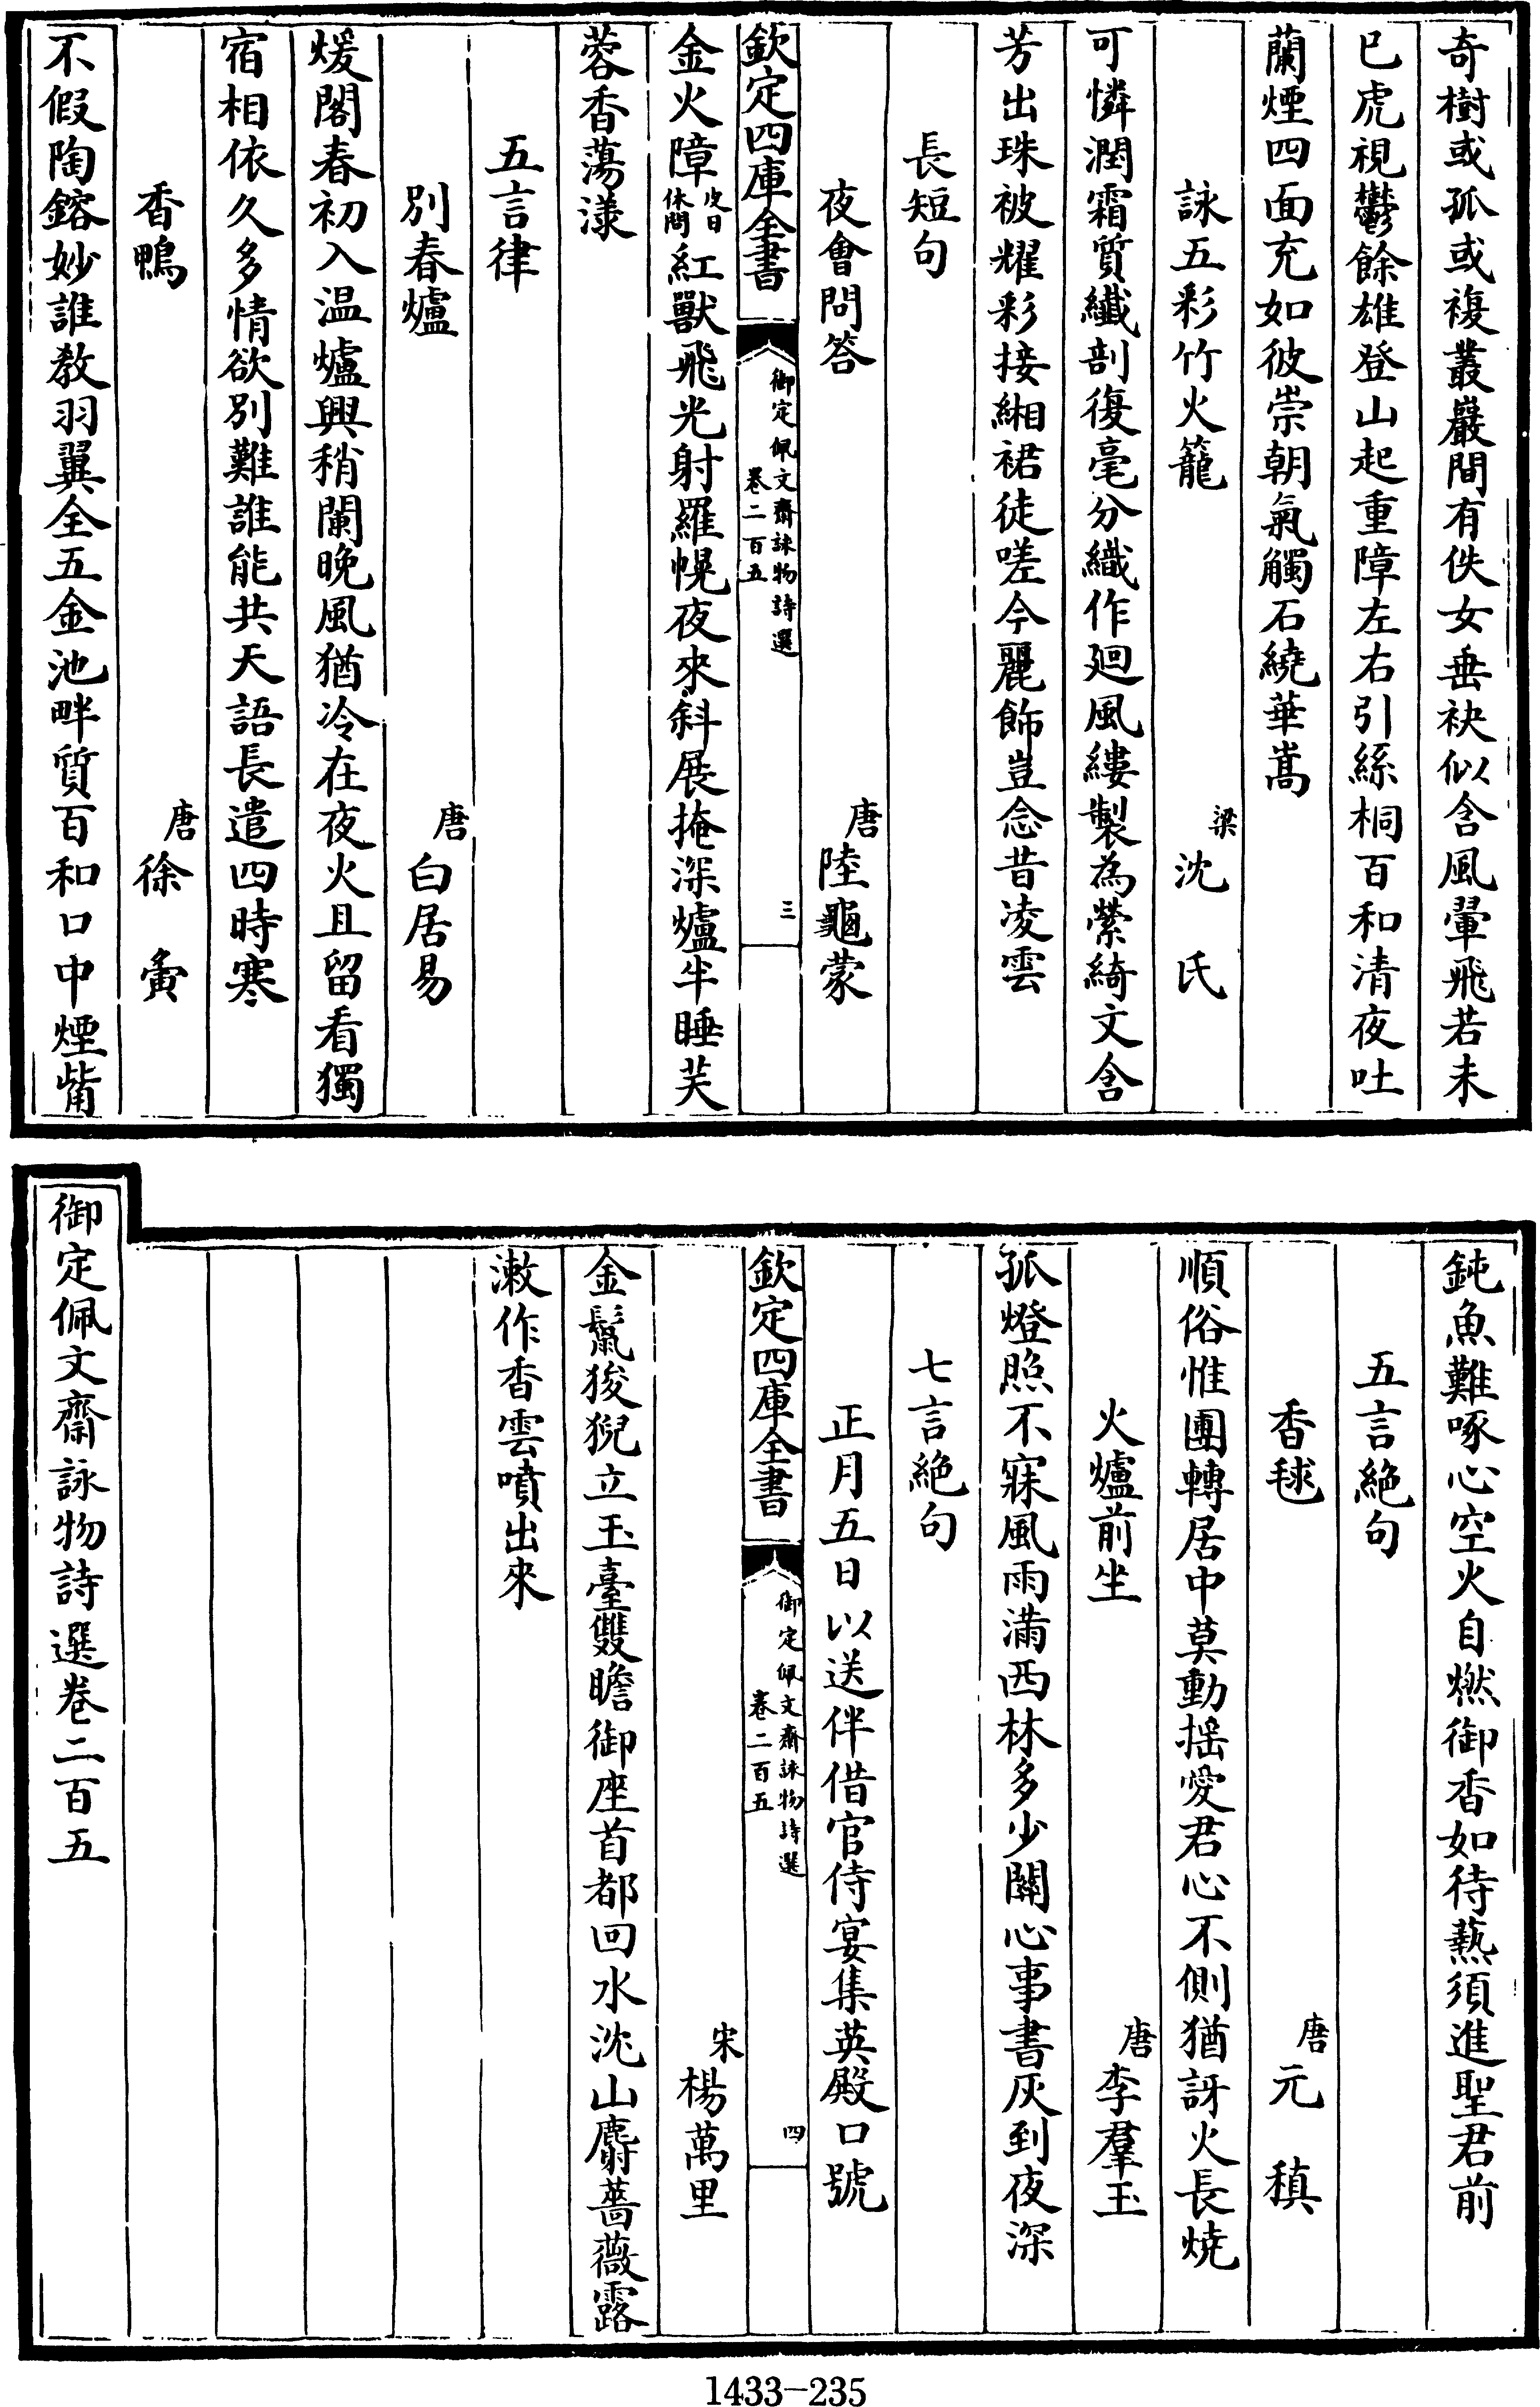 奇樹或孤或複叢巖間有佚女垂袂似含風翬飛若未
已虎視鬱餘雄登山起重障左右引絲桐百和清夜吐
蘭煙四面充如彼崇朝氣觸石繞華嵩
詠五彩竹火籠　梁沈氏
可憐潤霜質纖剖復毫分織作廻風縷製為縈綺文含
芳出珠被耀彩接緗裙徒嗟今麗飾豈念昔凌雲
長短句
夜會問答　唐陸龜蒙
欽定四庫全書
御定佩文齋詠物詩選
卷二百五
三
金火障皮日休問紅獸飛光射羅幌夜來斜展掩深爐半睡芙
蓉香蕩漾
五言律
別春爐　唐白居易
煖閣春初入温爐興稍闌晚風猶冷在夜火且留看獨
宿相依久多情欲別難誰能共天語長遣四時寒
香鴨　唐徐夤
不假陶鎔妙誰教羽翼全五金池畔質百和口中煙觜
鈍魚難啄心空火自燃御香如待爇須進聖君前
五言絶句
香毬　唐元稹
順俗惟團轉居中莫動揺愛君心不側猶訝火長燒
火爐前坐　唐李羣玉
孤燈照不寐風雨滿西林多少關心事書灰到夜深
七言絶句
正月五日以送伴借官侍宴集英殿口號
欽定四庫全書
御定佩文齋詠物詩選
卷二百五
四
宋楊萬里
金鬣狻猊立玉臺雙瞻御座首都回水沈山麝薔薇露
漱作香雲噴出來
御定佩文齋詠物詩選卷二百五
1433-235